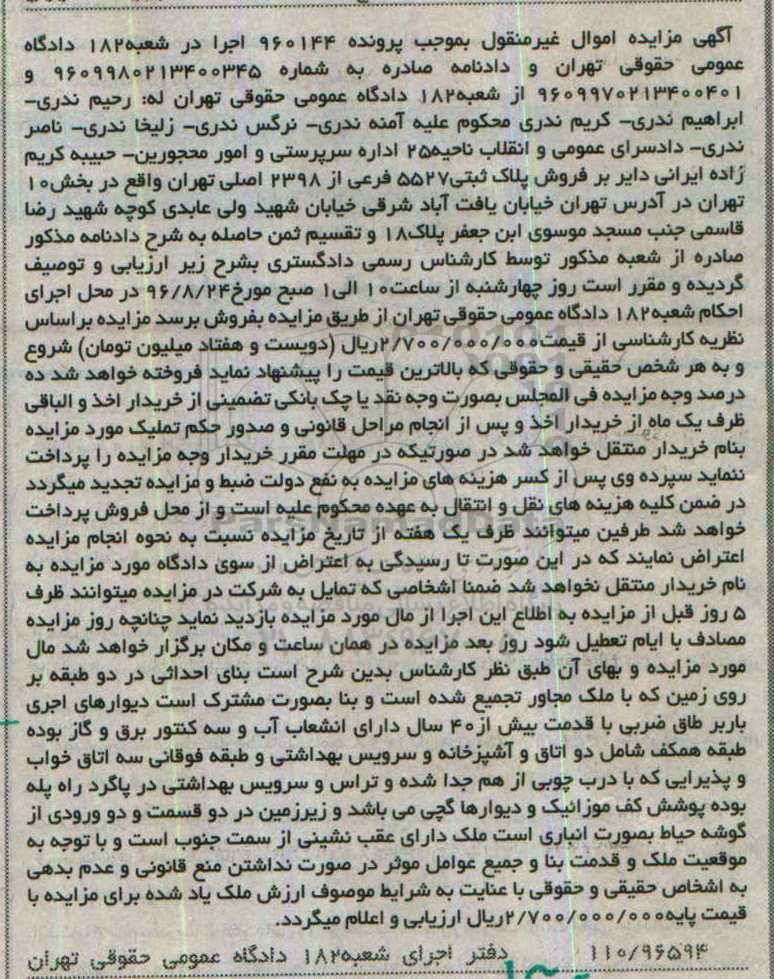 آگهی مزایده اموال غیرمنقول بموجب پرونده ۹۶۰۱۴۴ اجرا در شعبه۱۸۲ دادگاه
عمومی حقوقی تهران و دادنامه صادره به شماره ۹۶۰۹۹۸۰۲۱۳۴۰۰۳۴۵ و
۹۶۰۹۹۷۰۲۱۳۴۰۰۴۰۱ از شعبه۱۸۲ دادگاه عمومی حقوقی تهران له: رحیم ندری-
ابراهیم ندری- کریم ندری محکوم علیه آمنه ندری- نرگس ندری- زلیخا ندری- ناصر
ندری- دادسرای عمومی و انقلاب ناحیه۲۵ اداره سرپرستی و امور محجورین- حبیبه کریم
زاده ایرانی دایر بر فروش پلاک ثبتی۵۵۲۷ فرعی از ۲۳۹۸ اصلی تهران واقع در بخش۱۰
تهران در آدرس تهران خیابان یافت آباد شرقی خیابان شهید ولی عابدی کوچه شهید رضا
قاسمی جنب مسجد موسوی ابن جعفر پلاک۱۸ و تقسیم ثمن حاصله به شرح دادنامه مذکور
صادره از شعبه مذکور توسط کارشناس رسمی دادگستری بشرح زیر ارزیابی و توصیف
گردیده و مقرر است روز چهارشنبه از ساعت۱۰ الی۱ صبح مورخ۹۶/۸/۲۴ در محل اجرای
احکام شعبه۱۸۲ دادگاه عمومی حقوقی تهران از طریق مزایده بفروش برسد مزایده براساس
نظریه کارشناسی از قیمت۲/۷۰۰/۰۰۰/۰۰۰ریال (دویست و هفتاد میلیون تومان) شروع
و به هر شخص حقیقی و حقوقی که بالاترین قیمت را پیشنهاد نماید فروخته خواهد شد ده
درصد وجه مزایده فی المجلس بصورت وجه نقد یا چک بانکی تضمینی از خریدار اخذ و الباقی
ظرف یک ماه از خریدار اخذ و پس از انجام مراحل قانونی و صدور حکم تملیک مورد مزایده
بنام خریدار منتقل خواهد شد در صورتیکه در مهلت مقرر خریدار وجه مزایده را پرداخت
ننماید سپرده وی پس از کسر هزینه های مزایده به نفع دولت ضبط و مزایده تجدید میگردد
در ضمن کلیه هزینه های نقل و انتقال به عهده محکوم علیه است و از محل فروش پرداخت
خواهد شد طرفین میتوانند ظرف یک هفته از تاریخ مزایده نسبت به نحوه انجام مزایده
اعتراض نمایند که در این صورت تا رسیدگی به اعتراض از سوی دادگاه مورد مزایده به
نام خریدار منتقل نخواهد شد ضمنا اشخاصی که تمایل به شرکت در مزایده میتوانند ظرف
۵ روز قبل از مزایده به اطلاع این اجرا از مال مورد مزایده بازدید نماید چنانچه روز مزایده
مصادف با ایام تعطیل شود روز بعد مزایده در همان ساعت و مکان برگزار خواهد شد مال
مورد مزایده و بهای آن طبق نظر کارشناس بدین شرح است بنای احداثی در دو طبقه بر
روی زمین که با ملک مجاور تجمیع شده است و بنا بصورت مشترک است دیوارهای اجری
باربر طاق ضربی با قدمت بیش از۴۰ سال دارای انشعاب آب و سه کنتور برق و گاز بوده
طبقه همکف شامل دو اتاق و آشپزخانه و سرویس بهداشتی و طبقه فوقانی سه اتاق خواب
و پذیرایی که با درب چوبی از هم جدا شده و تراس و سرویس بهداشتی در پاگرد راه پله
بوده پوشش کف موزائیک و دیوارها گچی می باشد و زیرزمین در دو قسمت و دو ورودی از
گوشه حیاط بصورت انباری است ملک دارای عقب نشینی از سمت جنوب است و با توجه به
موقعیت ملک و قدمت بنا و جمیع عوامل موثر در صورت نداشتن منع قانونی و عدم بدهی
به اشخاص حقیقی و حقوقی با عنایت به شرایط موصوف ارزش ملک یاد شده برای مزایده با
قیمت پایه۲/۷۰۰/۰۰۰/۰۰۰ریال ارزیابی و اعلام میگردد.
۱۱۰/۹۶۵۹۴ دفتر اجرای شعبه۱۸۲ دادگاه عمومی حقوقی تهران